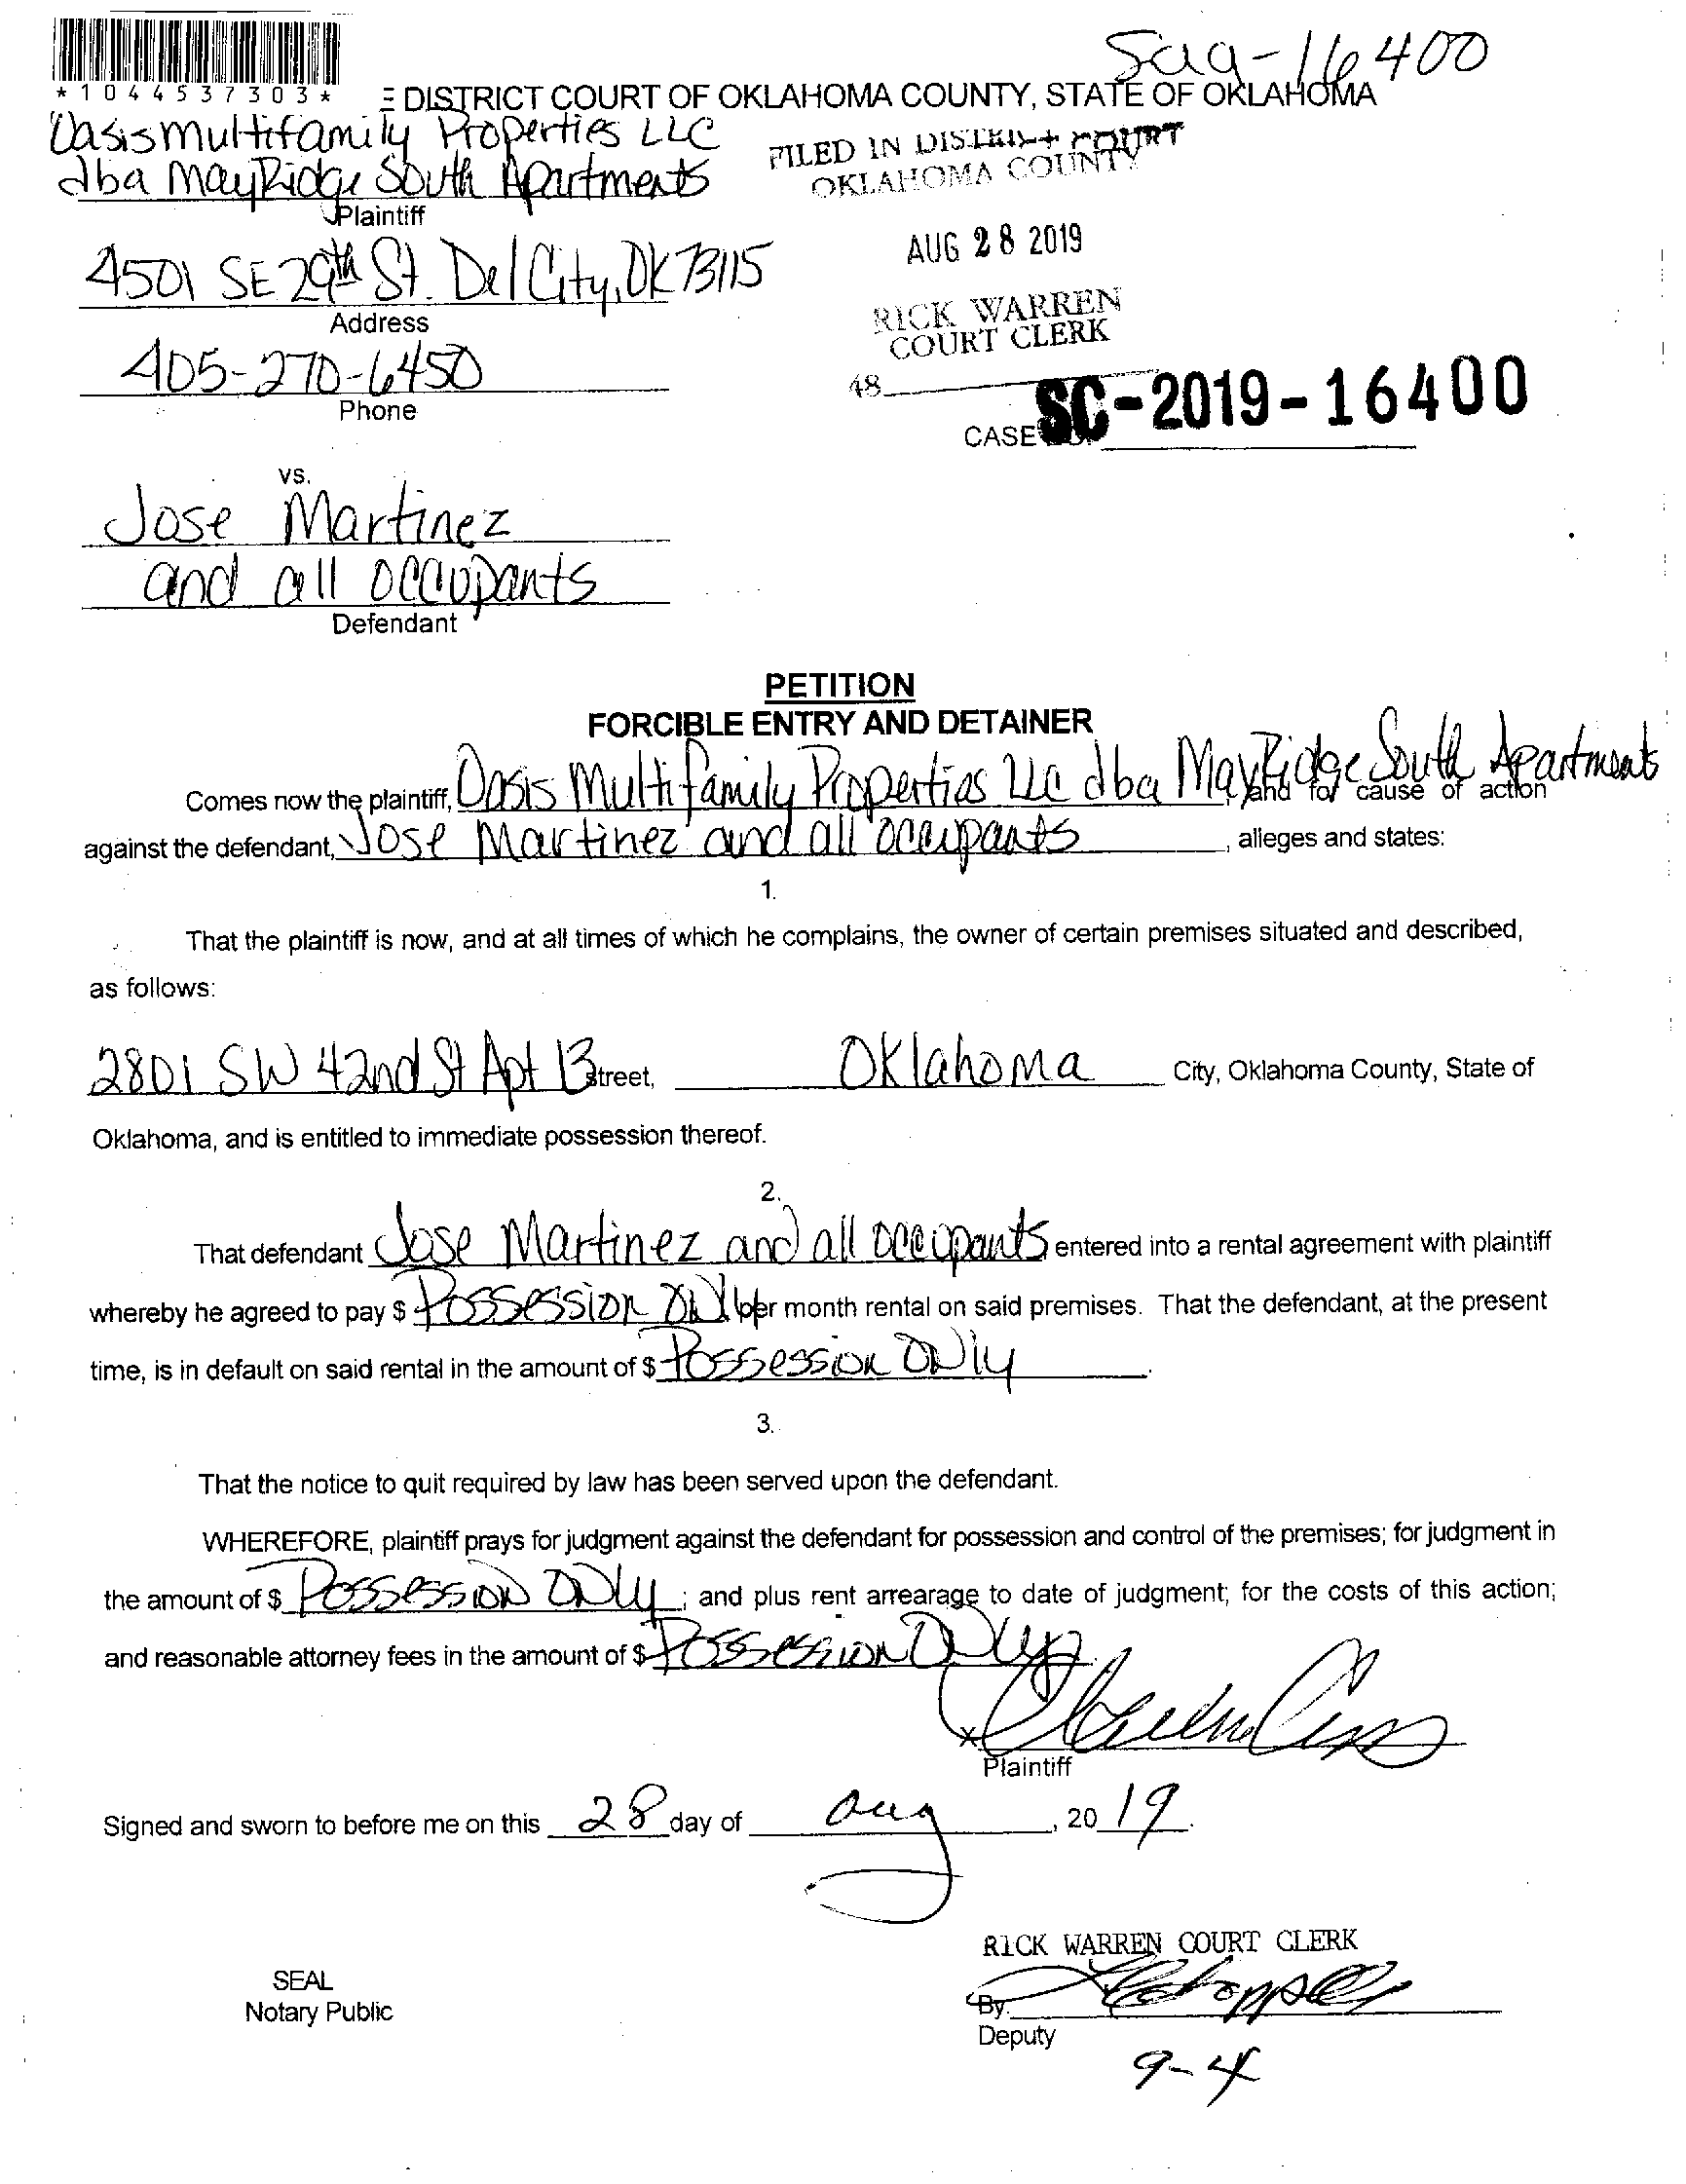 Sag-16400
*1044537303*
DISTRICT COURT OF OKLAHOMA COUNTY, STATE OF OKLAHOMA
Oasis Multifamily Properties LLC
dba MayRidge South Apartments
Plaintiff
FILED IN DISTRICT COURT
OKLAHOMA COUNTY
4501 SE 29th St. Del City, OK 73115
Address
AUG 28 2019
405-270-6450
Phone
RICK WARREN
COURT CLERK
48
CASE SC-2019-16400
vs.
Jose Martinez
and all occupants
Defendant
PETITION
FORCIBLE ENTRY AND DETAINER
Comes now the plaintiff, Oasis Multifamily Properties LLC dba MayRidge South Apartments and for cause of action
against the defendant, Jose Martinez and all occupants, alleges and states:
1.
That the plaintiff is now, and at all times of which he complains, the owner of certain premises situated and described,
as follows:
2801 SW 42nd St Apt 13 Street, Oklahoma City, Oklahoma County, State of
Oklahoma, and is entitled to immediate possession thereof.
2.
That defendant Jose Martinez and all occupants entered into a rental agreement with plaintiff
whereby he agreed to pay $ Possession Only per month rental on said premises. That the defendant, at the present
time, is in default on said rental in the amount of $ Possession Only.
3.
That the notice to quit required by law has been served upon the defendant.
WHEREFORE, plaintiff prays for judgment against the defendant for possession and control of the premises; for judgment in
the amount of $ Possession Only; and plus rent arrearage to date of judgment; for the costs of this action;
and reasonable attorney fees in the amount of $ Possession Only.
x
Plaintiff
Signed and sworn to before me on this 28 day of Aug, 2019.
RICK WARREN COURT CLERK
SEAL
Notary Public
By:
Deputy
9-4